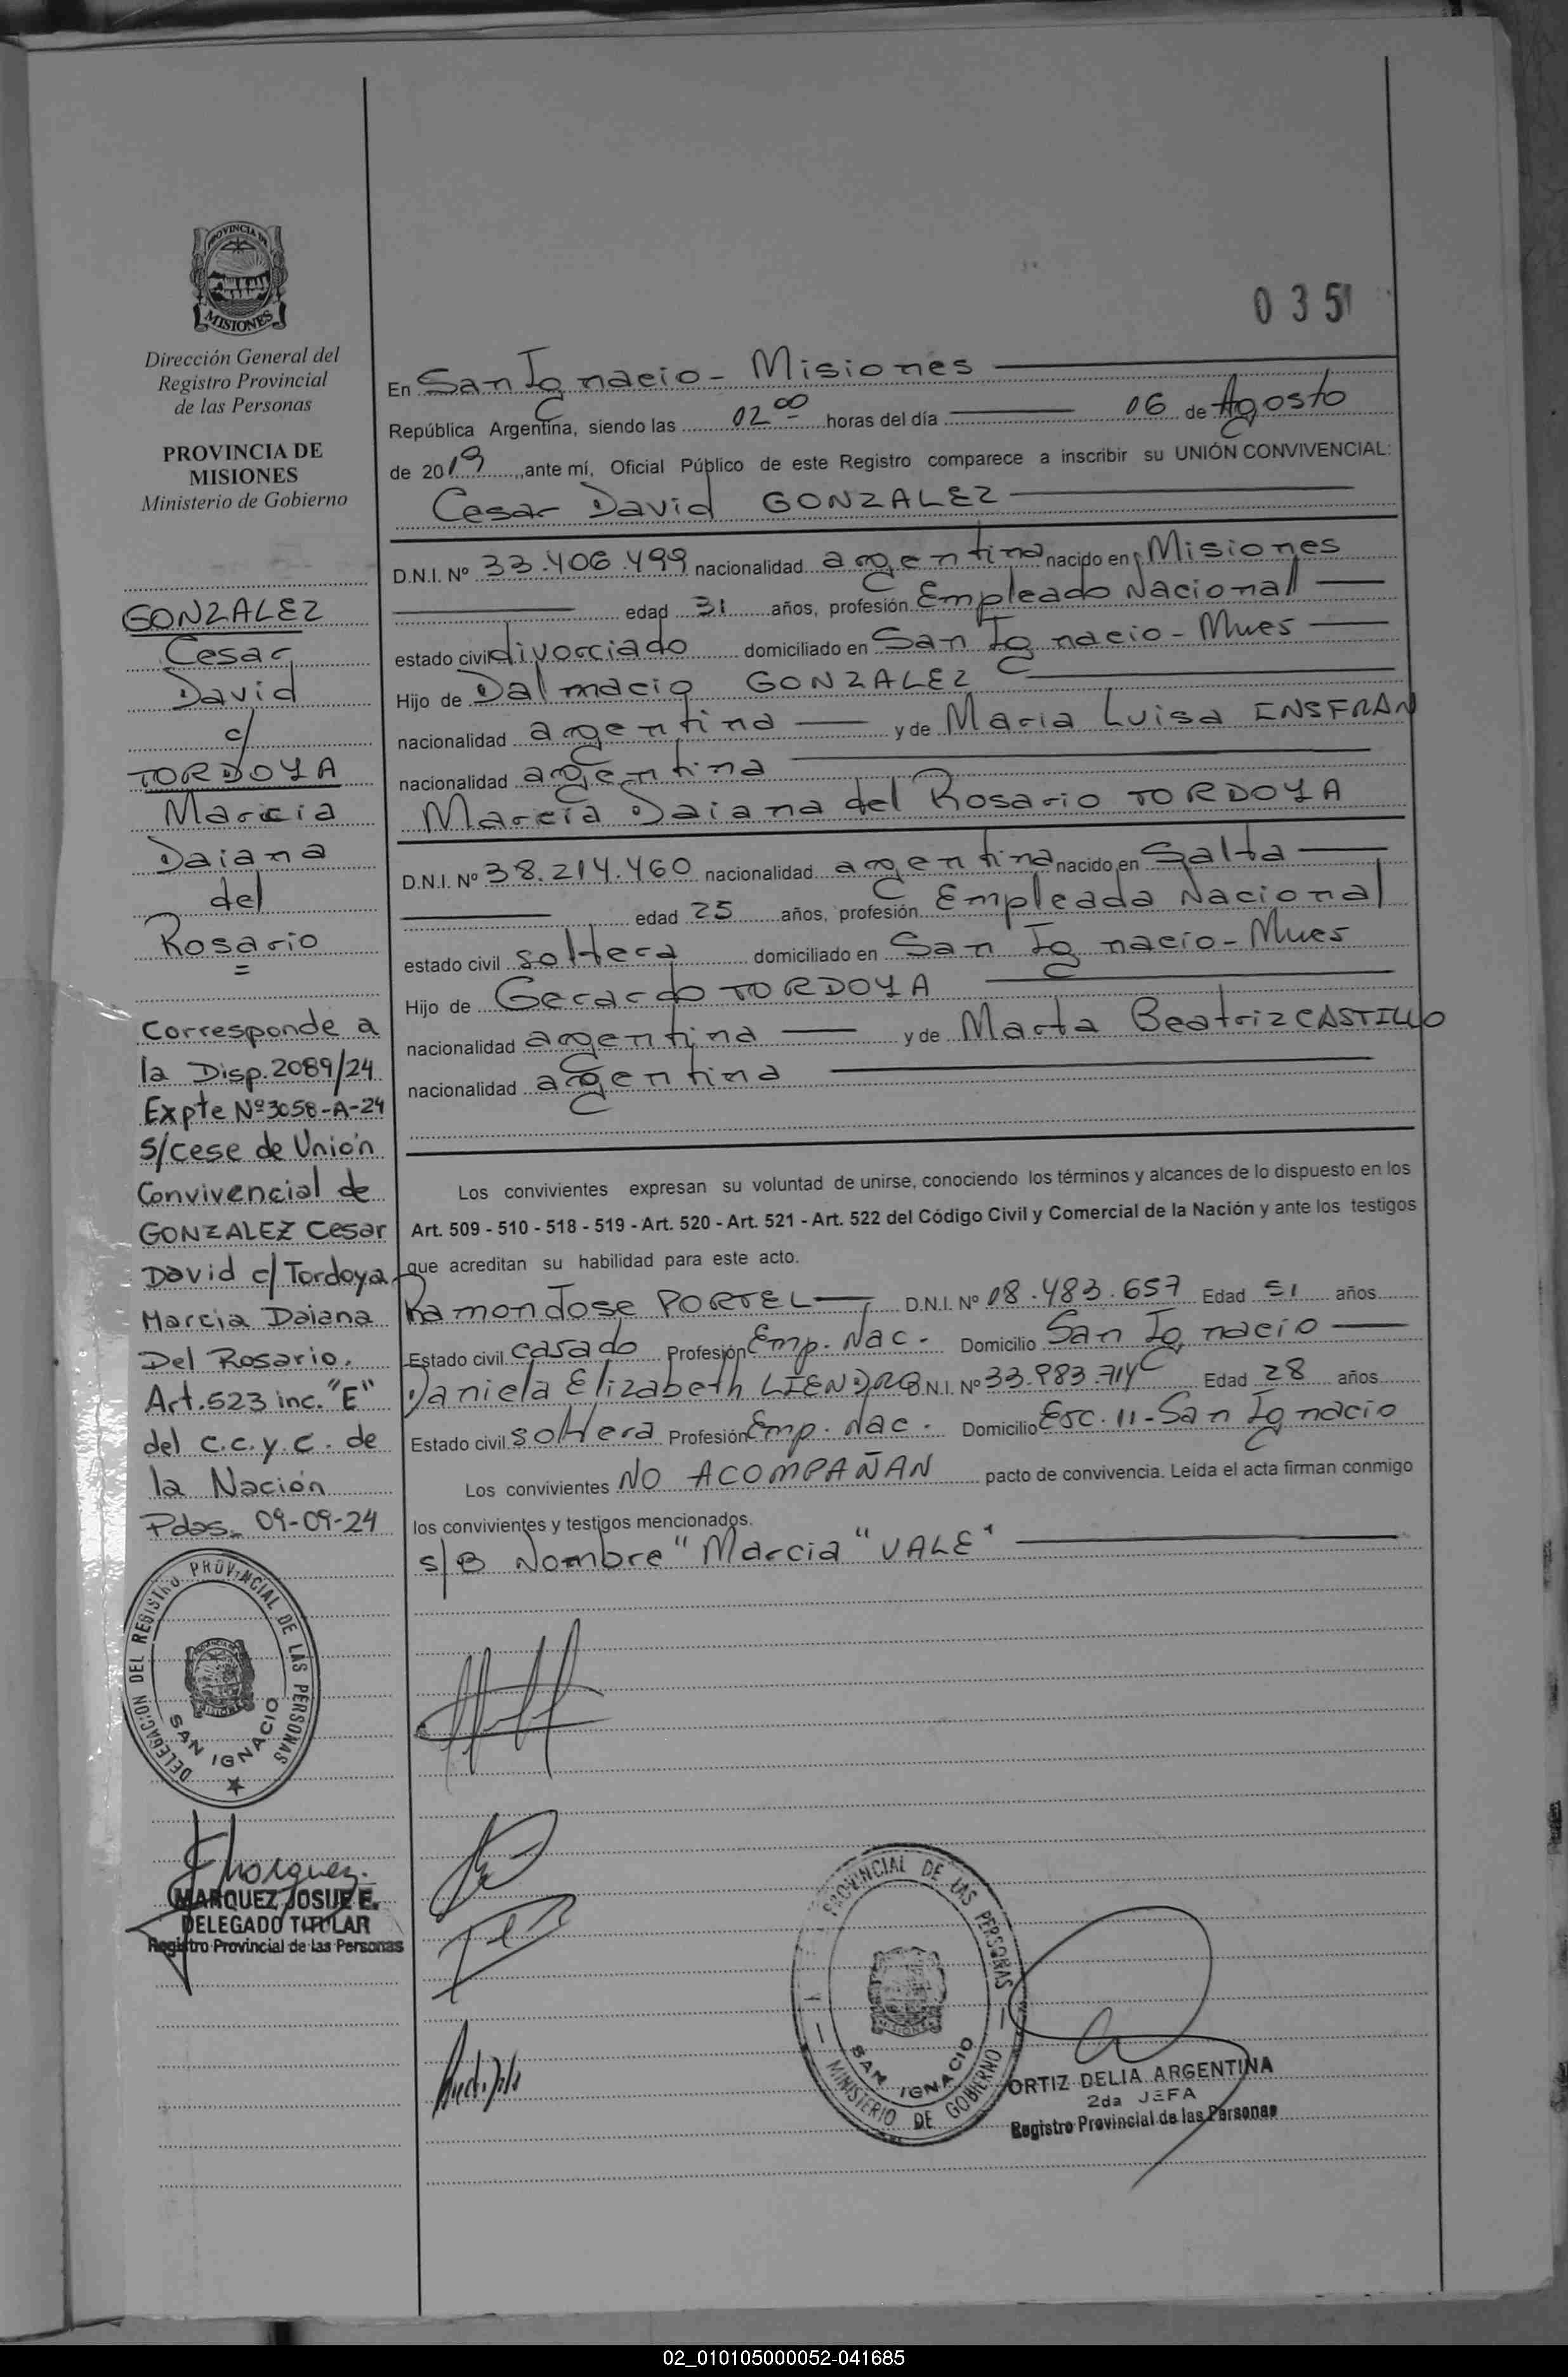 PROVINCIA DE
MISIONES
Dirección General del
Registro Provincial
de las Personas
PROVINCIA DE
MISIONES
Ministerio de Gobierno
GONZALEZ
Cesar
David
c/
TORDOYA
Marcia
Daiana
del
Rosario
=
Corresponde a
la Disp. 2089/24
Expte Nº3058-A-24
S/cese de Unión
Convivencial de
GONZALEZ Cesar
David c/ Tordoya
Marcia Daiana
Del Rosario.
Art. 523 inc. "E"
del c.c.y.c. de
la Nación
Pdas. 09-09-24
DELEGACION DEL REGISTRO PROVINCIAL DE LAS PERSONAS
SAN IGNACIO
MARQUEZ JOSUE E.
DELEGADO TITULAR
Registro Provincial de las Personas
035
En San Ignacio - Misiones
República Argentina, siendo las 02 00 horas del día 06 de Agosto
de 2019, ante mí, Oficial Público de este Registro comparece a inscribir su UNIÓN CONVIVENCIAL:
Cesar David GONZALEZ
D.N.I. Nº 33.406.499 nacionalidad argentina nacido en Misiones
edad 31 años, profesión Empleado Nacional
estado civil divorciado domiciliado en San Ignacio - Mnes
Hijo de Dalmacio GONZALEZ
nacionalidad argentina y de Maria Luisa ENSFRAN
nacionalidad argentina
Marcia Daiana del Rosario TORDOYA
D.N.I. Nº 38.214.460 nacionalidad argentina nacido en Salta
edad 25 años, profesión Empleada Nacional
estado civil soltera domiciliado en San Ignacio - Mnes
Hijo de Gerardo TORDOYA
nacionalidad argentina y de Marta Beatriz CASTILLO
nacionalidad argentina
Los convivientes expresan su voluntad de unirse, conociendo los términos y alcances de lo dispuesto en los
Art. 509 - 510 - 518 - 519 - Art. 520 - Art. 521 - Art. 522 del Código Civil y Comercial de la Nación y ante los testigos
que acreditan su habilidad para este acto.
Ramon Jose PORTEL D.N.I. Nº 18.483.657 Edad 51 años
Estado civil casado Profesión Emp. Nac. Domicilio San Ignacio
Daniela Elizabeth LIENDRO D.N.I. Nº 33.983.714 Edad 28 años
Estado civil soltera Profesión Emp. Nac. Domicilio Esc. 11 - San Ignacio
Los convivientes NO ACOMPAÑAN pacto de convivencia. Leída el acta firman conmigo
los convivientes y testigos mencionados.
S/B Nombre "Marcia" VALE"
PROVINCIAL DE LAS PERSONAS
SAN IGNACIO
MINISTERIO DE GOBIERNO
ORTIZ DELIA ARGENTINA
2da JEFA
Registro Provincial de las Personas
02_010105000052-041685